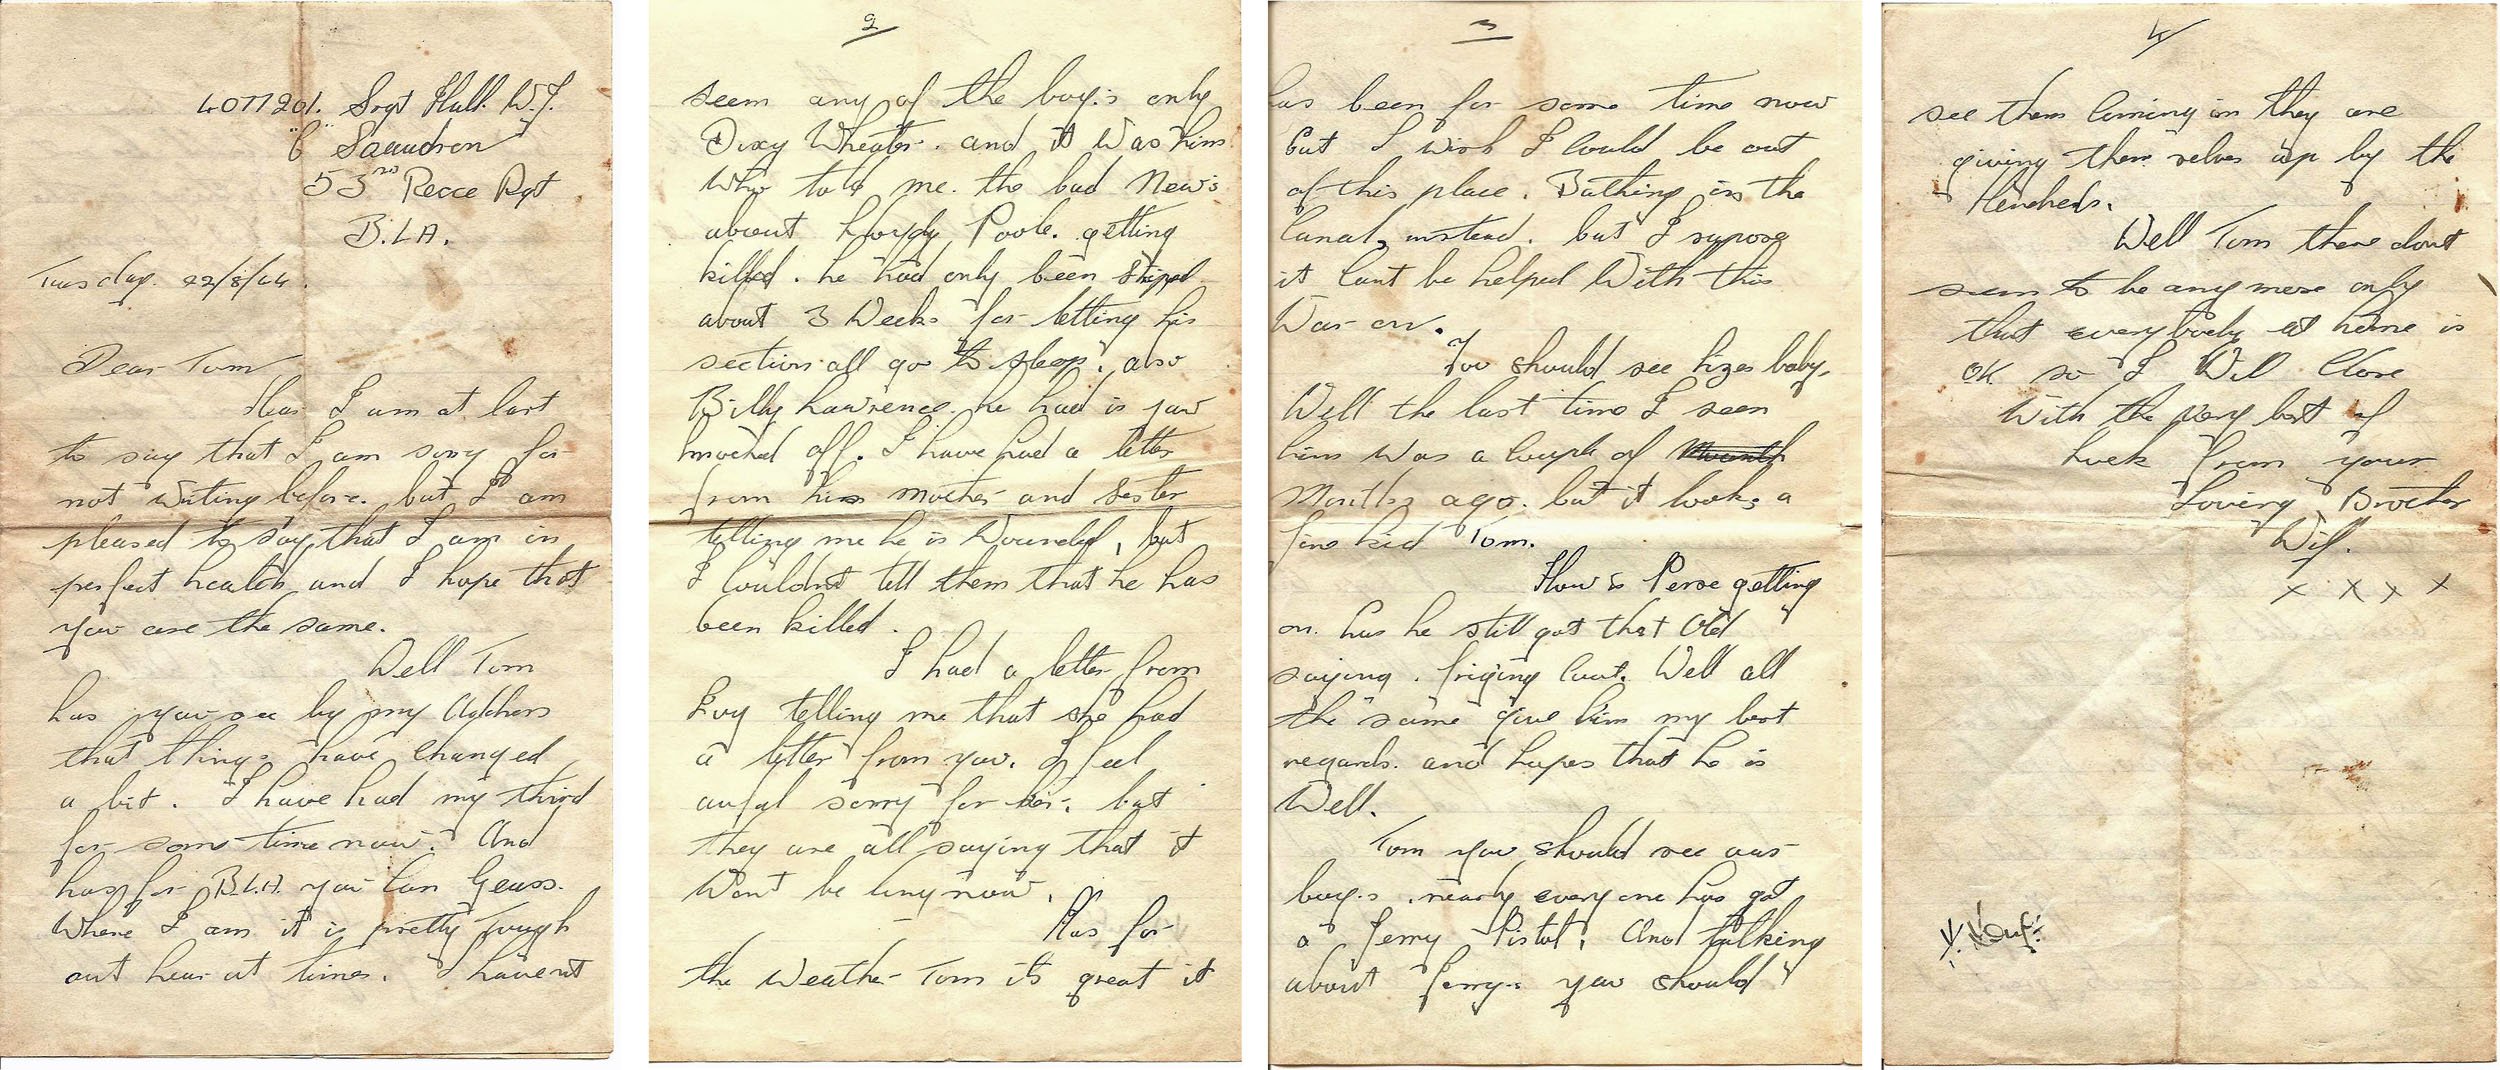 4077201. Srgt Hall. W.J.
"C" Squadron
53rd Recce Rgt
B.L.A.
Tuesday. 22/8/44.
Dear Tom
Hear I am at last
to say that I am sorry for
not writing before. but I am
pleased to say that I am in
perfect health and I hope that
you are the same.
Well Tom
has you see by my Address
that things have changed
a bit. I have had my third
for some time now. And
has for B.L.A. you can Geuss.
Where I am it is pretty Tough
out hear at times. I havent
2
seem any of the boys only
Dixy Wheater. and it was him
who told me. the bad News
about Poole. getting
killed. he had only been striped
about 3 Weeks for letting his
section all go to sleep. also
Billy Lawrence. he had is jaw
knocked off. I have had a letter
from his mother and sester
telling me he is wounded, but
I couldnt tell them that he has
been killed.
I had a letter from
Ivy telling me that she had
a letter from you. I feel
awful sorry for her. but
they are all saying that it
wont be long now.
Has for
the weather Tom its great it
3
has been for some time now
but I wish I could be out
of this place. Bathing in the
Canal, instead. but I supose
it cant be helped with this
War on.
You should see Lizes baby.
Well the last time I seen
him was a couple of
Months ago. but it looks a
fine kid Tom.
How is Perse getting
on. has he still got that Old
saying. friging cunt. Well all
the same give him my best
regards. and hopes that he is
Well.
Tom you should see our
boys. nearly everyone has got
a Jerry Pistol. And talking
about Jerrys you should
4
see them coming in they are
giving them selves up by the
Hundreds.
Well Tom there dont
seem to be any more only
that everybody at home is
OK so I Will Close
With the very best of
luck from your
Loving Brother
Wif.
x x x x